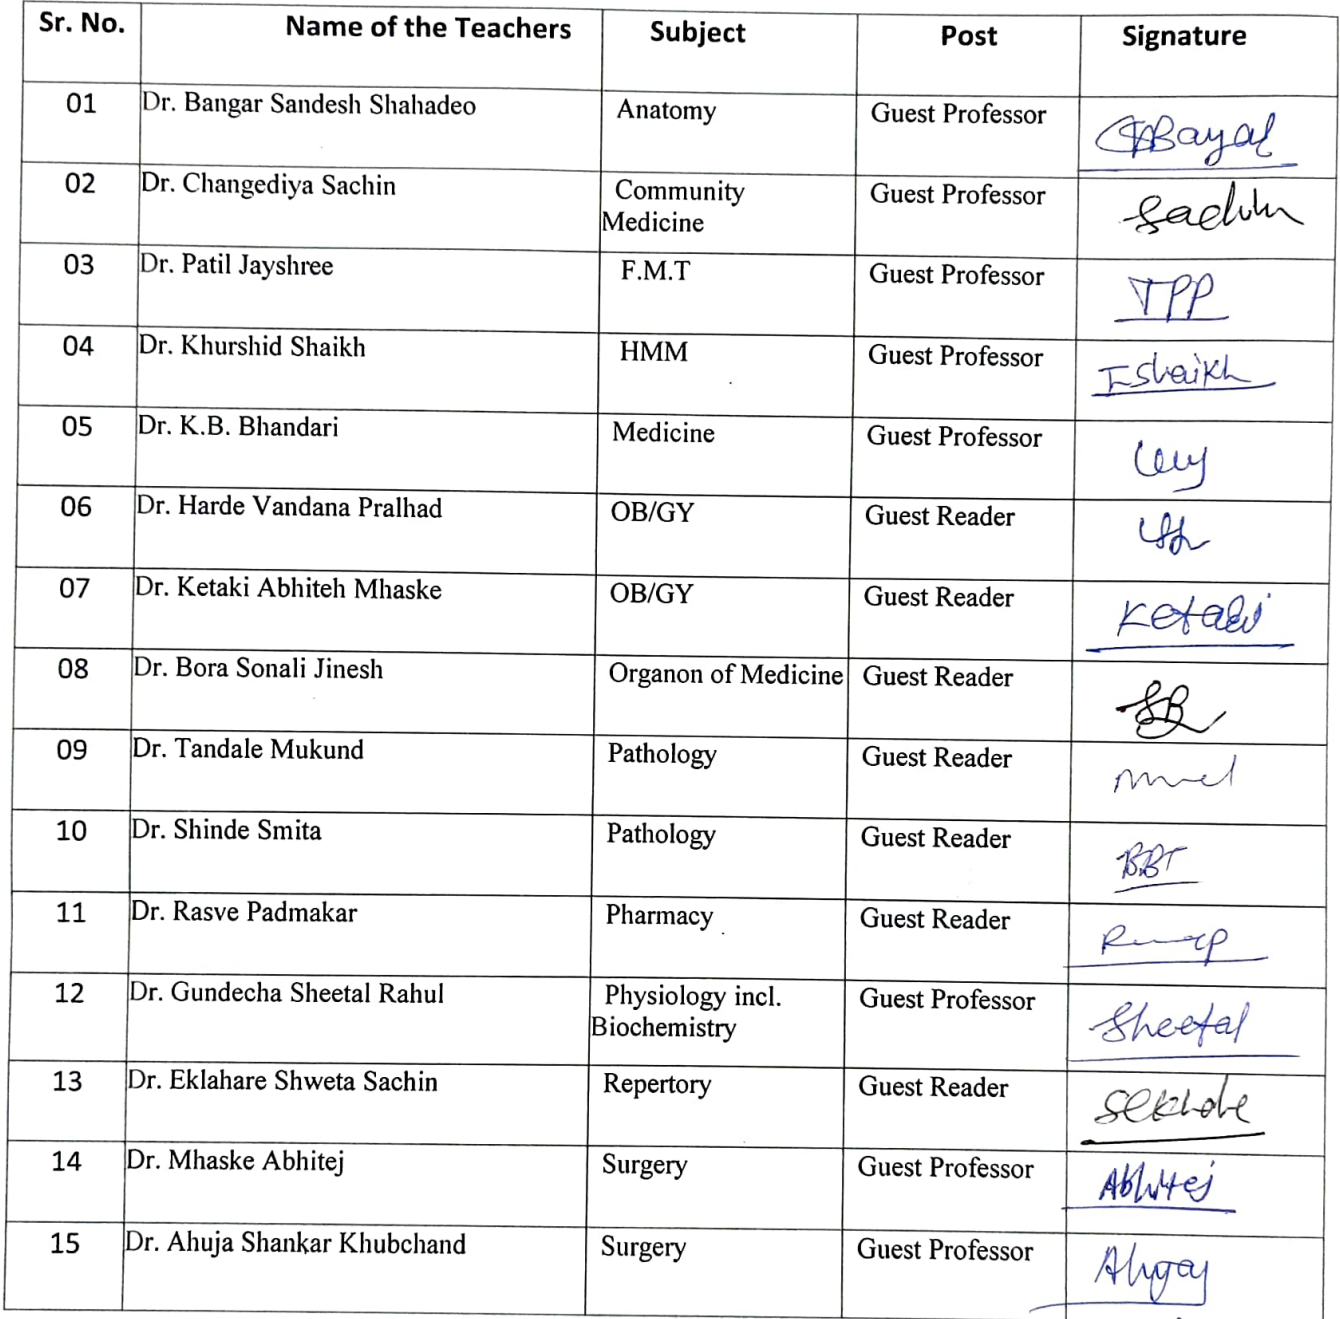 Sr. No. Name of the Teachers Subject Post Signature
01 Dr. Bangar Sandesh Shahadeo Anatomy Guest Professor
02 Dr. Changediya Sachin Community Guest Professor
Medicine
03 Dr. Patil Jayshree F.M.T Guest Professor JPP
04 Dr. Khurshid Shaikh HMM Guest Professor IShaikh
05 Dr. K.B. Bhandari Medicine Guest Professor
06 Dr. Harde Vandana Pralhad OB/GY Guest Reader
07 Dr. Ketaki Abhiteh Mhaske OB/GY Guest Reader Ketaki
08 Dr. Bora Sonali Jinesh Organon of Medicine Guest Reader SB
09 Dr. Tandale Mukund Pathology Guest Reader
10 Dr. Shinde Smita Pathology Guest Reader BBT
11 Dr. Rasve Padmakar Pharmacy Guest Reader
12 Dr. Gundecha Sheetal Rahul Physiology incl. Guest Professor Sheetal
Biochemistry
13 Dr. Eklahare Shweta Sachin Repertory Guest Reader
14 Dr. Mhaske Abhitej Surgery Guest Professor Abhitej
15 Dr. Ahuja Shankar Khubchand Surgery Guest Professor